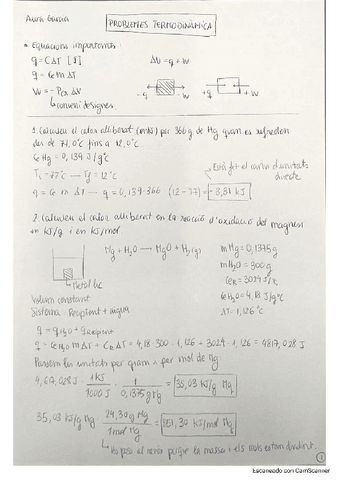 Aura Garcia
PROBLEMES TERMODINÀMICA
• Equacions importants:
q = C ΔT [J]
ΔU = q + W
q = Ce m ΔT
W = -Pex ΔV
-q -W +q +W
conveni de signes
1. Calculeu el calor alliberat (en kJ) per 366 g de Hg quan es refreden
des de 77,0°C fins a 12,0°C
Ce Hg = 0,139 J/g°C
Ti = 77°C → Tf = 12°C
Està fet el canvi d'unitats
directe
q = Ce m ΔT → q = 0,139·366 (12-77) = -3,31 kJ
2. Calculeu el calor alliberat en la reacció d'oxidació del magnesi
en kJ/g i en kJ/mol.
Mg + H2O → MgO + H2(g)
m Mg = 0,1375g
m H2O = 300g
Ce R = 3024 J/°C
Metall Mg
Ce H2O = 4,18 J/g°C
Volum constant
ΔT = 1,126°C
Sistema = Recipient + aigua
q = q H2O + q Recipient
q = Ce H2O m ΔT + CR ΔT = 4,18·300·1,126 + 3024·1,126 = 4817,028 J
Passem les unitats per gram i per mol de Mg
4,817,028J · 1kJ / 1000J · 1 / 0,1375g Mg = 35,03 kJ/g Mg
35,03 kJ/g Mg · 24,30g Mg / 1mol Mg = 851,30 kJ/mol Mg
Ho poso al revés perquè la massa i els mols estan dividint.
1
Escaneado con CamScanner